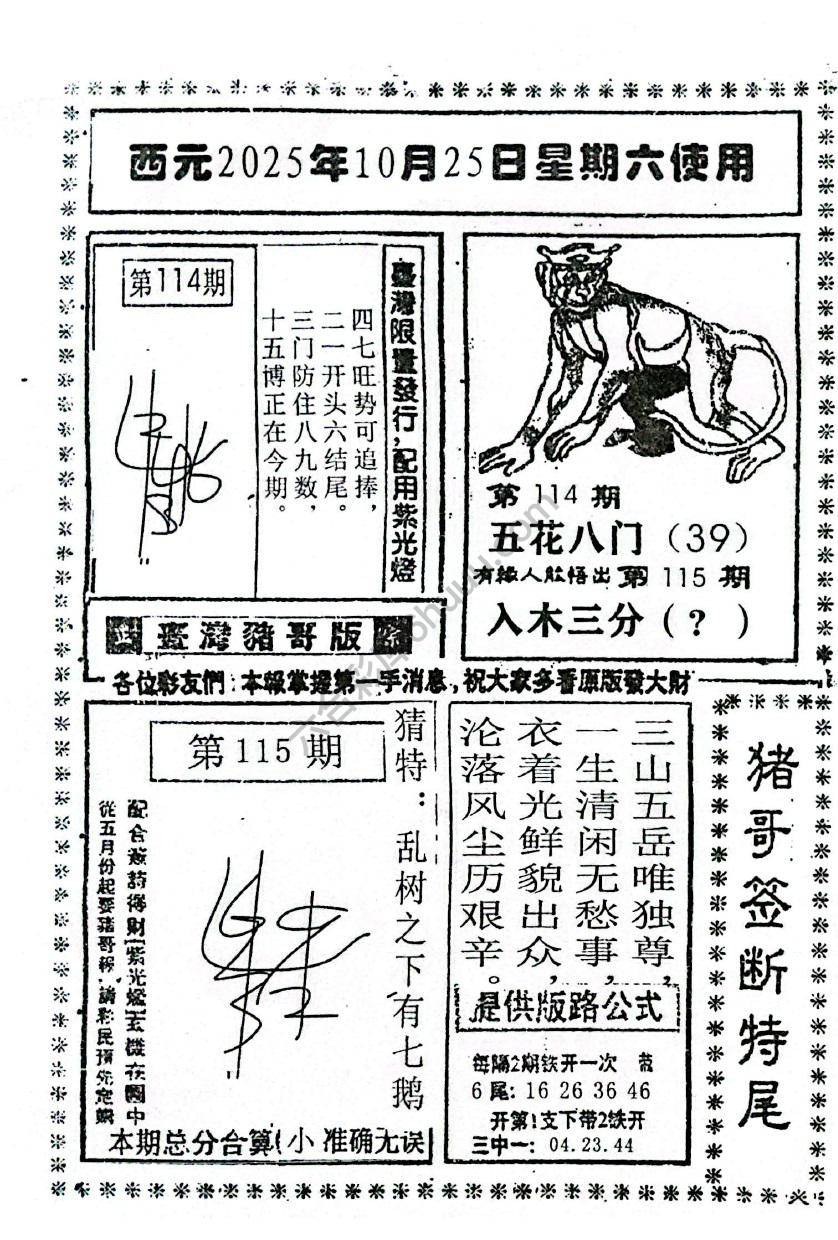 西元2025年10月25日星期六使用
第114期
四七旺势可追捧，
二一开头六结尾。
三门防住八九数，
十五博正在今期。
臺灣限量發行，配用紫光燈
臺灣豬哥版
第114期
五花八门（39）
有緣人能悟出第115期
入木三分（？）
各位彩友們：本報掌握第一手消息，祝大家多看原版發大財
第115期
猜特：乱树之下有七鹅
配合簽詩得財(紫光燈)玄機在圖中
從五月份起要豬哥報，請彩民預先定購
本期总分合算(小 准确无误
三山五岳唯独尊，
一生清闲无愁事，
衣着光鲜貌出众，
沦落风尘历艰辛。
提供版路公式
每隔2期铁开一次 带
6尾：16 26 36 46
开第1支下带2铁开
三中一：04.23.44
猪哥签断特尾